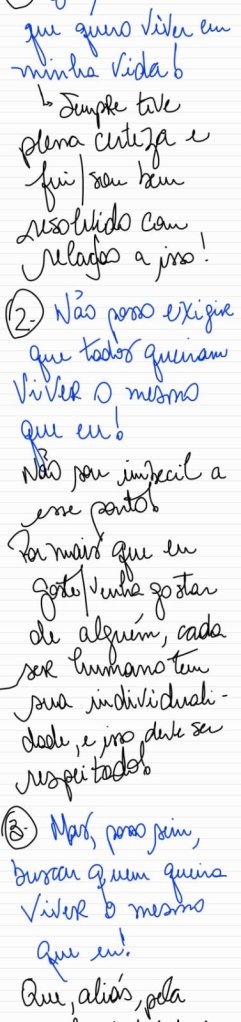 que quero viver em
minha vida!
↳ Sempre tive
plena certeza e
fui/sou bem
resolvido com
relação a isso!
2- Não posso exigir
que todos queiram
VIVER O mesmo
que eu!
Não sou imbecil a
esse ponto!
Por mais que eu
goste/venha gostar
de alguém, cada
ser humano tem
sua individuali-
dade, e isso deve ser
respeitado!
3- Mas, posso sim,
buscar quem queira
VIVER O mesmo
que eu!
Que, aliás, pela